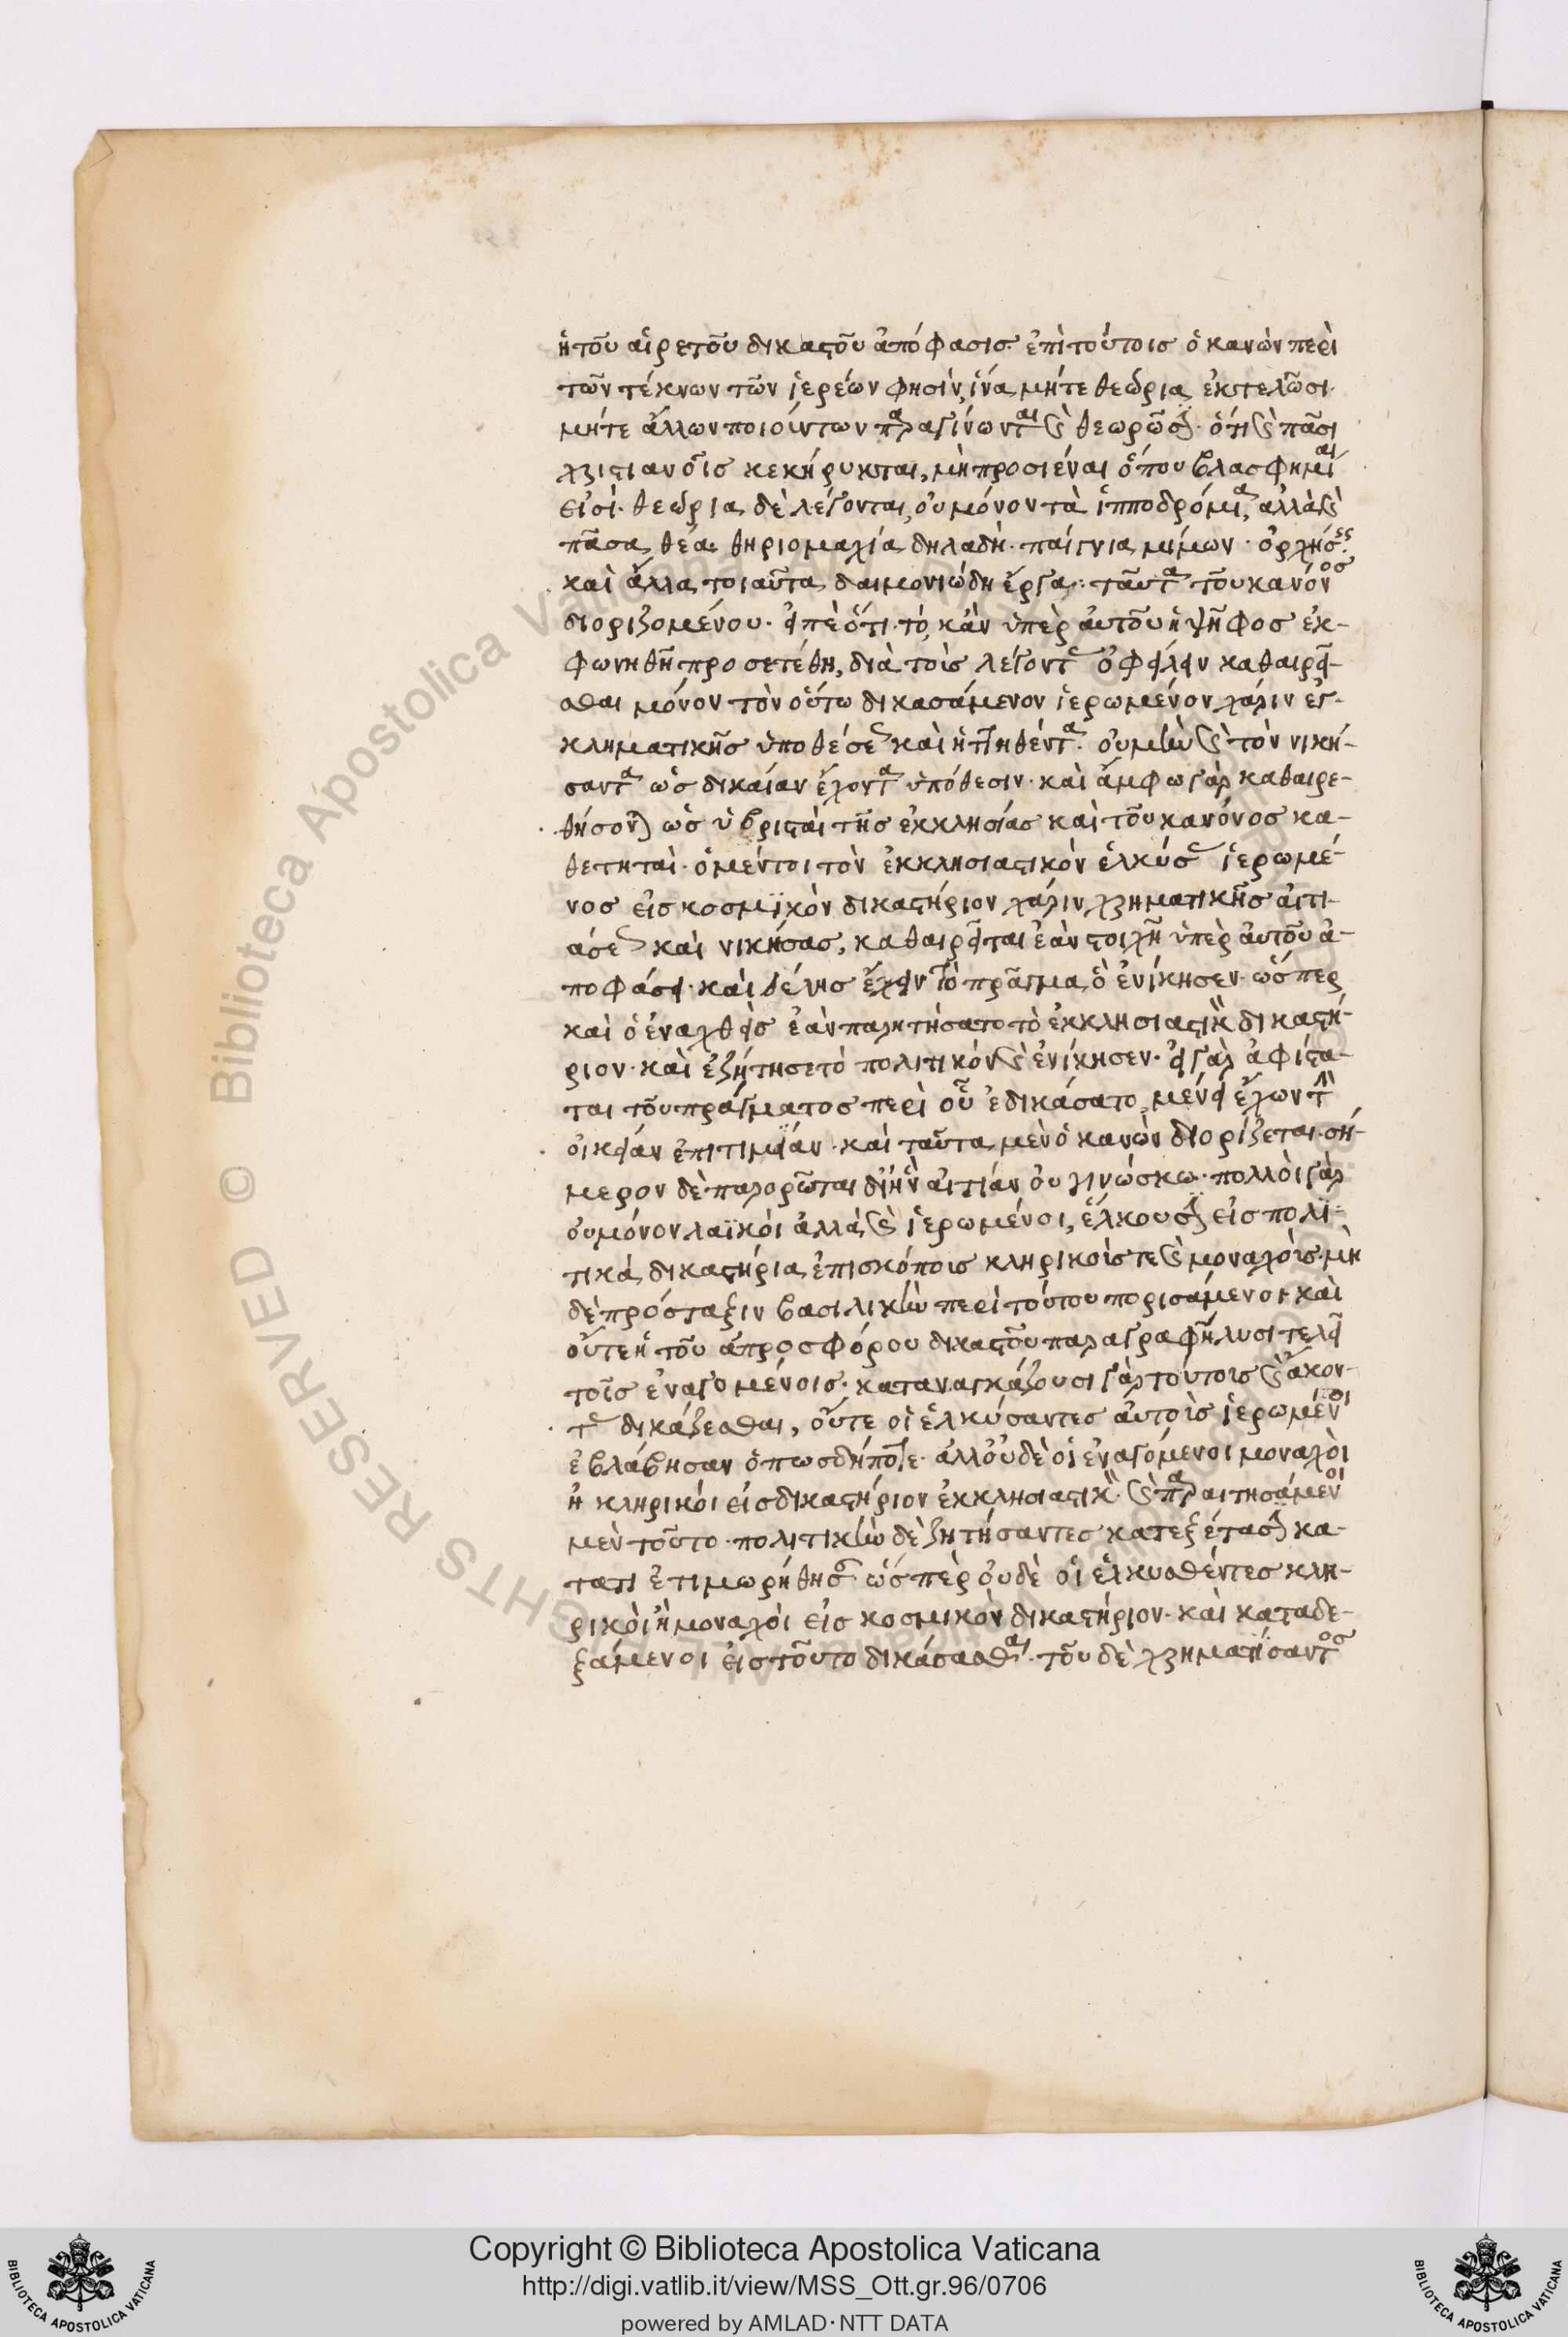 ἡ τοῦ αἱρετοῦ δικαστοῦ ἀπόφασις. ἐπὶ τούτοις ὁ κανὼν περὶ
τῶν τέκνων τῶν ἱερέων φησὶν, ἵνα μήτε θεώρια ἐκτελῶσι.
μήτε ἄλλων ποιούντων παραγίνωνται καὶ θεωρῶσιν. ὅτι καὶ πᾶσι
χριστιανοῖς κεκήρυκται, μὴ προσιέναι ὅπου βλασφημίαι
εἰσί. θεώρια δὲ λέγονται, οὐ μόνον τὰ ἱπποδρόμια, ἀλλὰ καὶ
πᾶσα θέα. θηριομαχία δηλαδὴ. παίγνια μίμων. ὀρχήσεις.
καὶ ἄλλα τοιαῦτα δαιμονιώδη ἔργα: ταῦτα τοῦ κανόνος
διοριζομένου. εἰπὲ ὅτι τὸ, κἂν ὑπὲρ αὐτοῦ ἡ ψῆφος ἐκ-
φωνηθῆ προσετέθη, διὰ τοὺς λέγοντας ὀφείλειν καθαιρεῖ-
σθαι μόνον τὸν οὕτω δικασάμενον ἱερωμένον χάριν ἐγ-
κληματικῆς ὑποθέσεως καὶ ἡττηθέντα. οὐ μὴν καὶ τὸν νική-
σαντα ὡς δικαίαν ἔχοντα ὑπόθεσιν. καὶ ἄμφω γὰρ καθαιρε-
θήσονται ὡς ὑβρισταὶ τῆς ἐκκλησίας καὶ τοῦ κανόνος κα-
θετηταὶ. ὁ μέντοι τὸν ἐκκλησιαστικὸν ἑλκύσας ἱερωμέ-
νος εἰς κοσμϊκὸν δικαστήριον χάριν χρηματικῆς αἰτι-
άσεως καὶ νικήσας, καθαιρεῖται ἐὰν στοιχῆ ὑπὲρ αὐτοῦ ἀ-
ποφάσει. καὶ θέλης ἔχειν τὸ πρᾶγμα ὃ ἐνίκησεν. ὥσπερ
καὶ ὁ ἐναχθεὶς ἐὰν παρητήσατο τὸ ἐκκλησιαστικὸν δικαστή-
ριον. καὶ ἐζήτησε τὸ πολιτικὸν καὶ ἐνίκησεν. εἰ γὰρ ἀφίστα-
ται τοῦ πράγματος περὶ οὗ ἐδικάσατο, μένει ἔχων τὴν
οἰκείαν ἐπιτιμίαν. καὶ ταῦτα μὲν ὁ κανὼν διορίζεται. σή-
μερον δὲ παρορῶνται δι' ἣν αἰτίαν οὐ γινώσκω. πολλοὶ γὰρ
οὐ μόνον λαϊκοὶ ἀλλὰ καὶ ἱερωμένοι, ἕλκουσιν εἰς πολϊ-
τικὰ δικαστήρια ἐπισκόπους κληρικούς τε καὶ μοναχούς. μὴ
δὲ πρόσταξιν βασιλικὴν περὶ τούτου πορισάμενοι καὶ
οὔτε ἡ τοῦ ἀπροσφόρου δικαστοῦ παραγραφὴ λυσιτελεῖ
τοῖς ἐναγομένοις. καταναγκάζουσι γὰρ τούτους καὶ ἄκον-
τας δικάζεσθαι, οὔτε οἱ ἑλκύσαντες αὐτοὺς ἱερωμένοι
ἐβλάβησαν ὁπωσδήποτε. ἀλλ' οὐδὲ οἱ ἐναγόμενοι μοναχοὶ
ἢ κληρικοὶ εἰς δικαστήριον ἐκκλησιαστικὸν. καὶ παραιτησάμενοι
μὲν τοῦτο. πολιτικὴν δὲ ζητήσαντες κατεξέτασιν κα-
τά τι ἐτιμωρήθησαν ὥσπερ οὐδὲ οἱ ἑλκυσθέντες κλη-
ρικοὶ ἢ μοναχοὶ εἰς κοσμικὸν δικαστήριον. καὶ καταδε-
ξάμενοι εἰς τοῦτο δικάσασθαι. τοῦ δὲ χρηματίσαντος
Copyright © Biblioteca Apostolica Vaticana
http://digi.vatlib.it/view/MSS_Ott.gr.96/0706
powered by AMLAD·NTT DATA